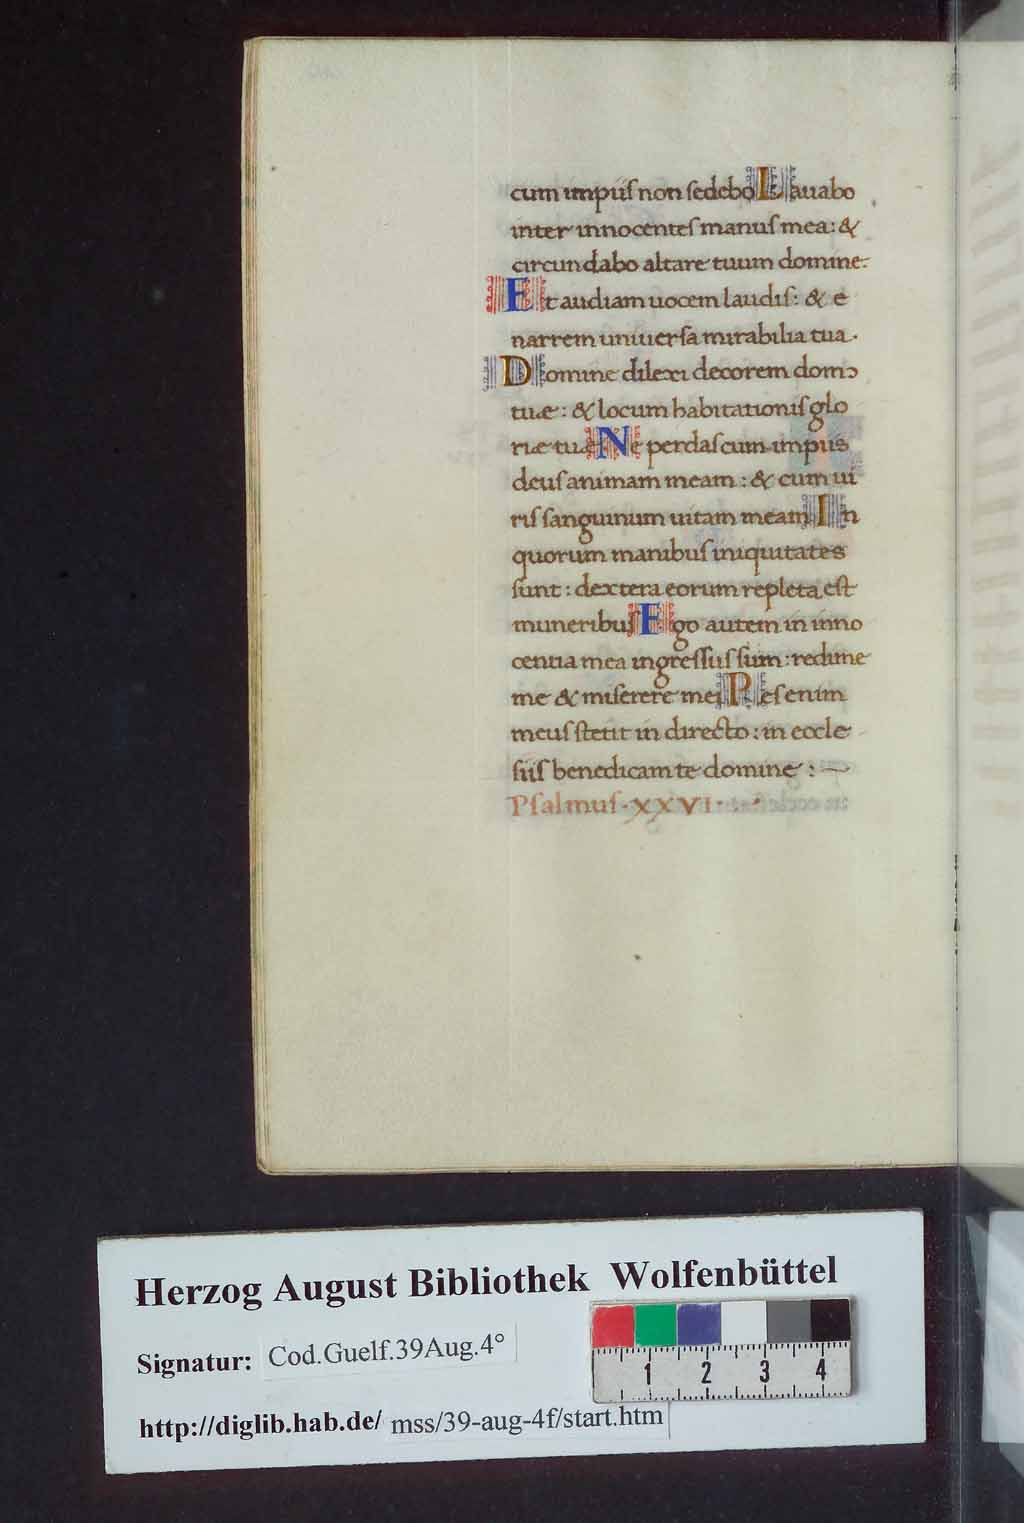 cum impiis non sedebo Lauabo
inter innocentes manus mea: &
circundabo altare tuum domine:
Et audiam uocem laudis: & e
narrem uniuersa mirabilia tua.
Domine dilexi decorem domɔ
tuæ: & locum habitationis glo
riæ tuæ Ne perdas cum impiis
deus animam meam: & cum ui
ris sanguinum uitam meam In
quorum manibus iniquitates
sunt: dextera eorum repleta est
muneribus Ego autem in inno
centia mea ingressus sum: redime
me & miserere mei Pes enim
meus stetit in directo: in eccle
siis benedicam te domine:—
Psalmus·XXVI·
Herzog August Bibliothek Wolfenbüttel
Signatur: Cod.Guelf.39Aug.4°
1 2 3 4
http://diglib.hab.de/ mss/39-aug-4f/start.htm